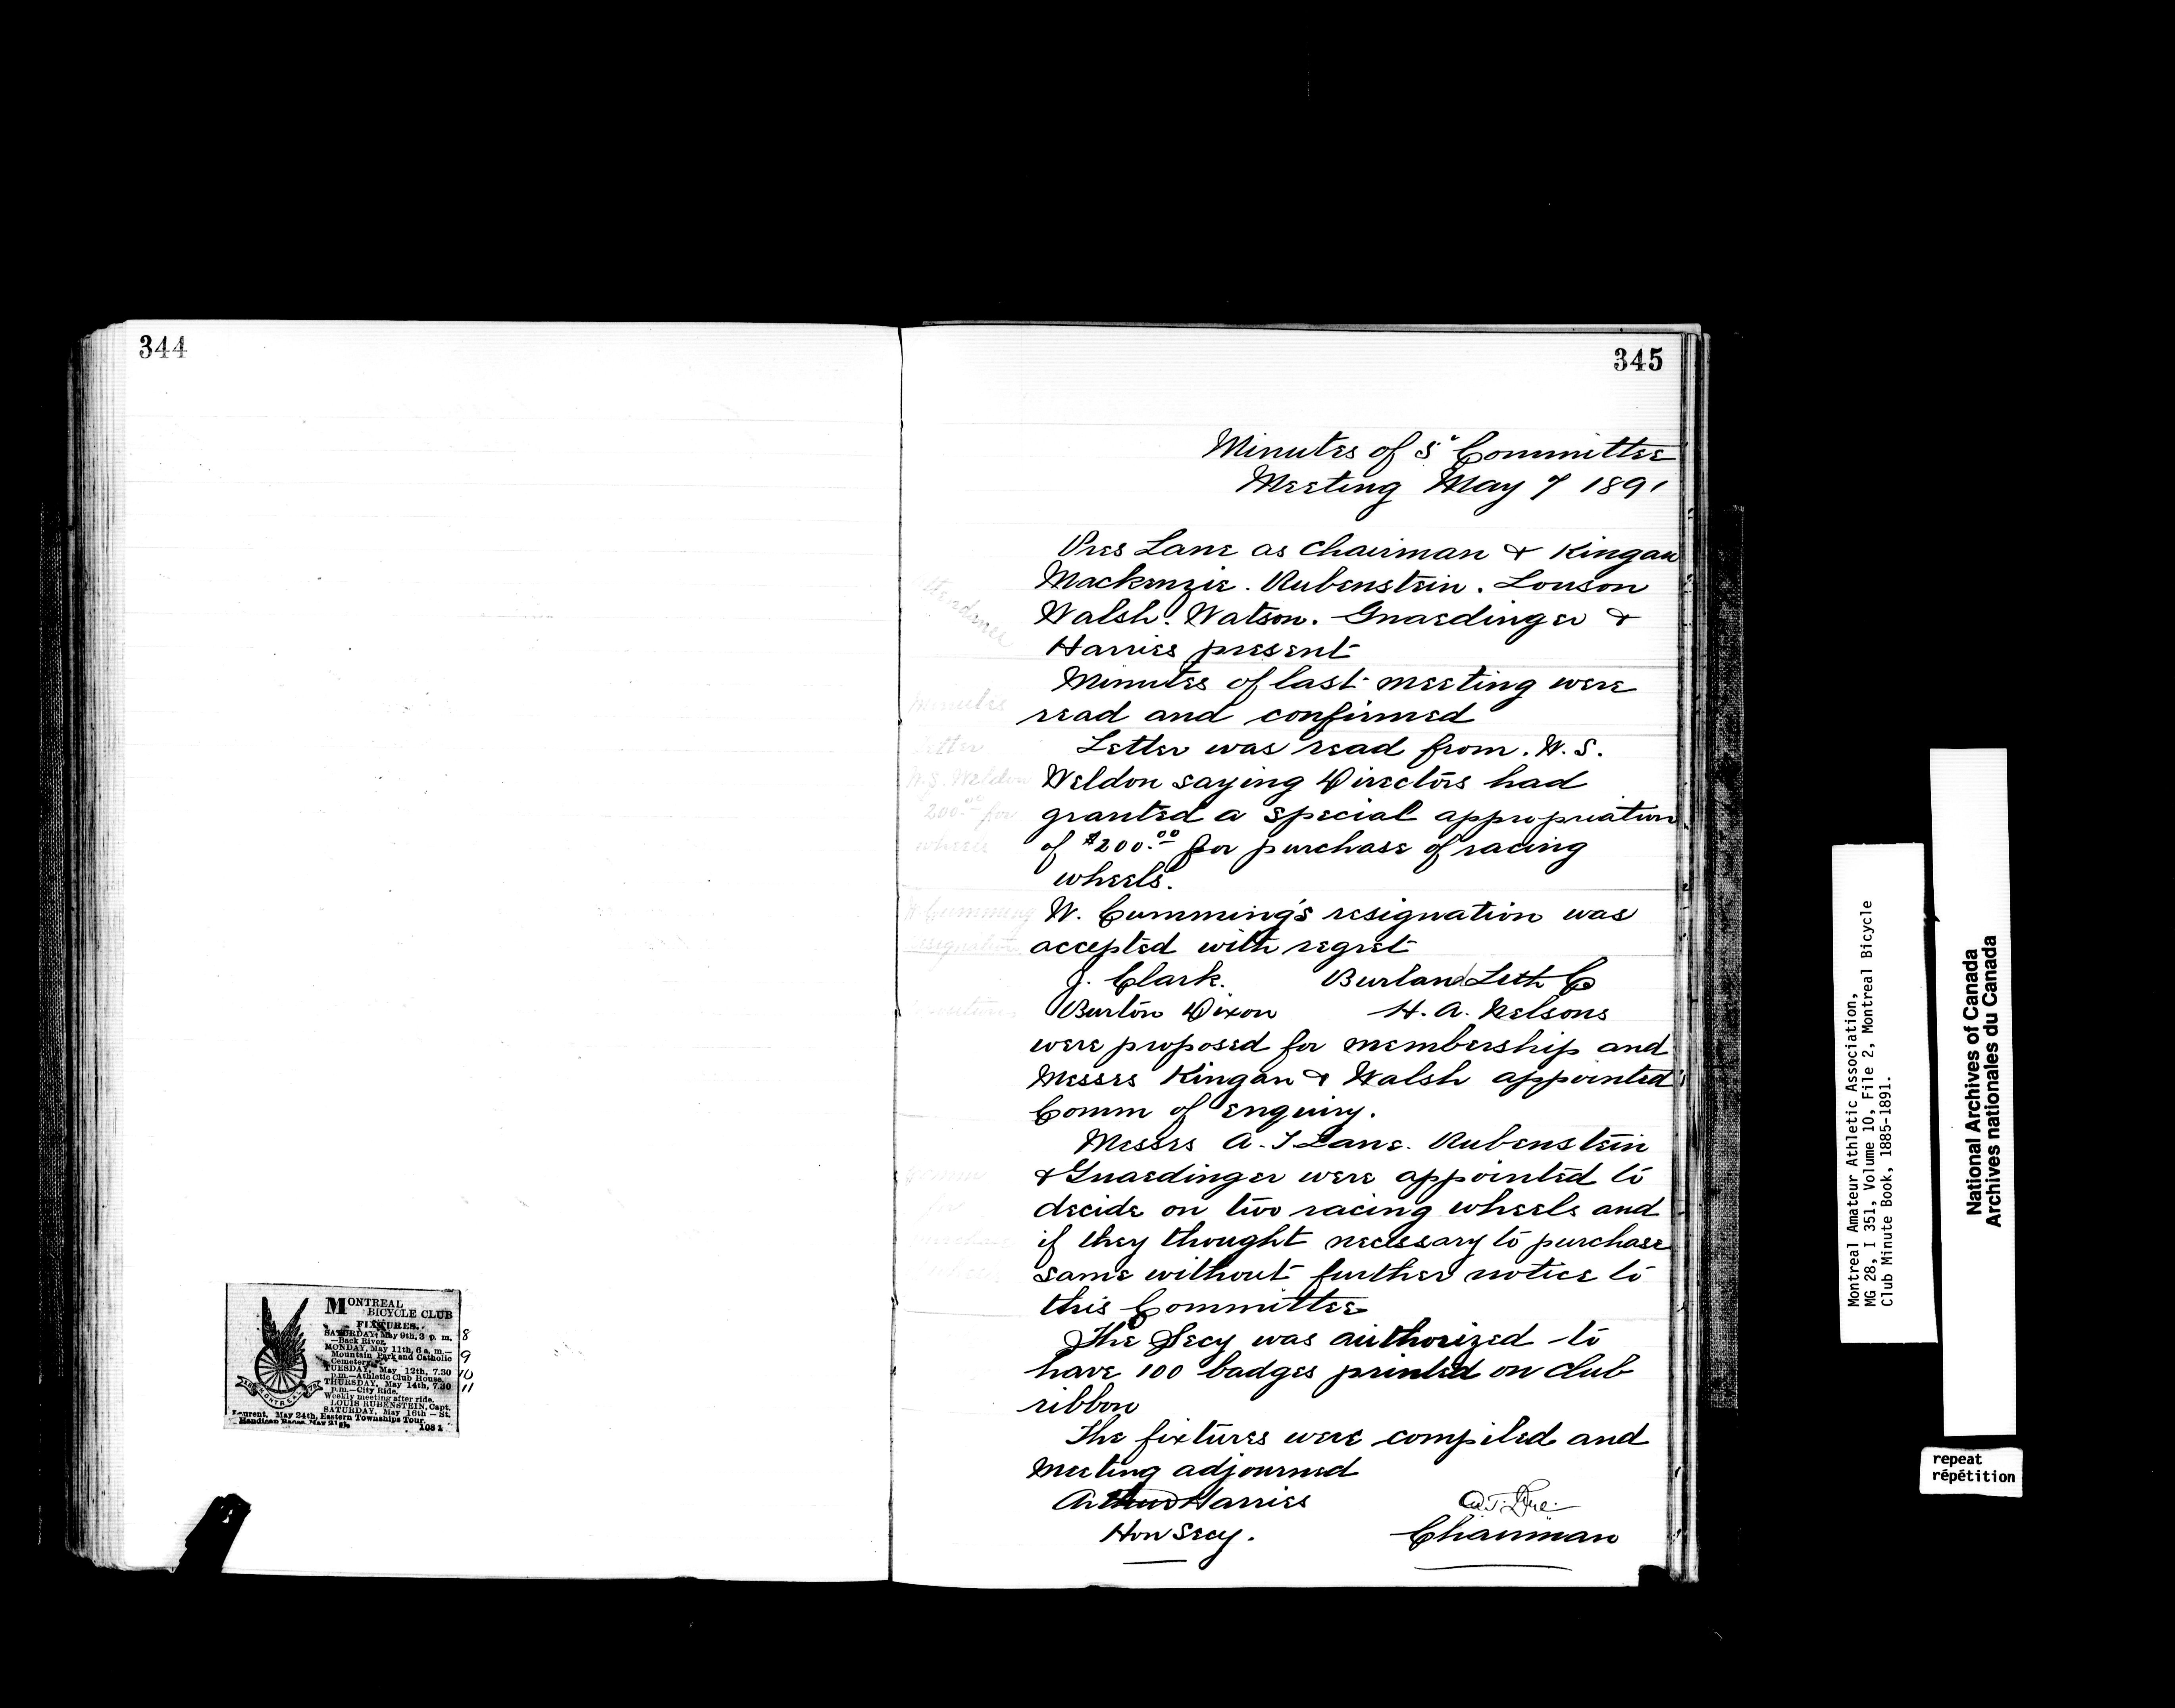 344
MONTREAL
BICYCLE CLUB
FIXTURES.
SATURDAY, May 9th, 3 p. m.
—Back River.
MONDAY, May 11th, 6 a. m.—
Mountain Park and Catholic
Cemetery.
TUESDAY, May 12th, 7.30
p.m.—Athletic Club House.
THURSDAY, May 14th, 7.30
p.m.—City Ride.
Weekly meeting after ride.
LOUIS RUBENSTEIN, Capt.
SATURDAY, May 16th — St.
Laurent. May 24th, Eastern Townships Tour.
Handicap Races, May 21st.
108 1
8
9
10
11
MONTREAL
345
Minutes of Committee
Meeting May 7 1891
Attendance
Pres Lane as Chairman & Kingan
Mackenzie. Rubenstein. Louson
Walsh. Watson. Gnaedinger &
Harries present
Minutes
Minutes of last meeting were
read and confirmed
Letter
W.S. Weldon
200.00 for
wheels
Letter was read from. W. S.
Weldon saying Directors had
granted a special appropriation
of $200.00 for purchase of racing
wheels.
W. Cumming
resignation
W. Cumming's resignation was
accepted with regret
J. Clark. Burland Lith Co
Burton Dixon H. A. Nelsons
were proposed for membership and
Messrs Kingan & Walsh appointed
Comm of enquiry.
Comm
for
purchase
wheels
Messrs A. T Lane. Rubenstein
& Gnaedinger were appointed to
decide on two racing wheels and
if they thought necessary to purchase
same without further notice to
this Committee
The Secy was authorized to
have 100 badges printed on club
ribbon
The fixtures were compiled and
Meeting adjourned
Arthur Harries
Hon Secy.
A. T. Lane
Chairman
Montreal Amateur Athletic Association,
MG 28, I 351, Volume 10, File 2, Montreal Bicycle
Club Minute Book, 1885-1891.
National Archives of Canada
Archives nationales du Canada
repeat
répétition